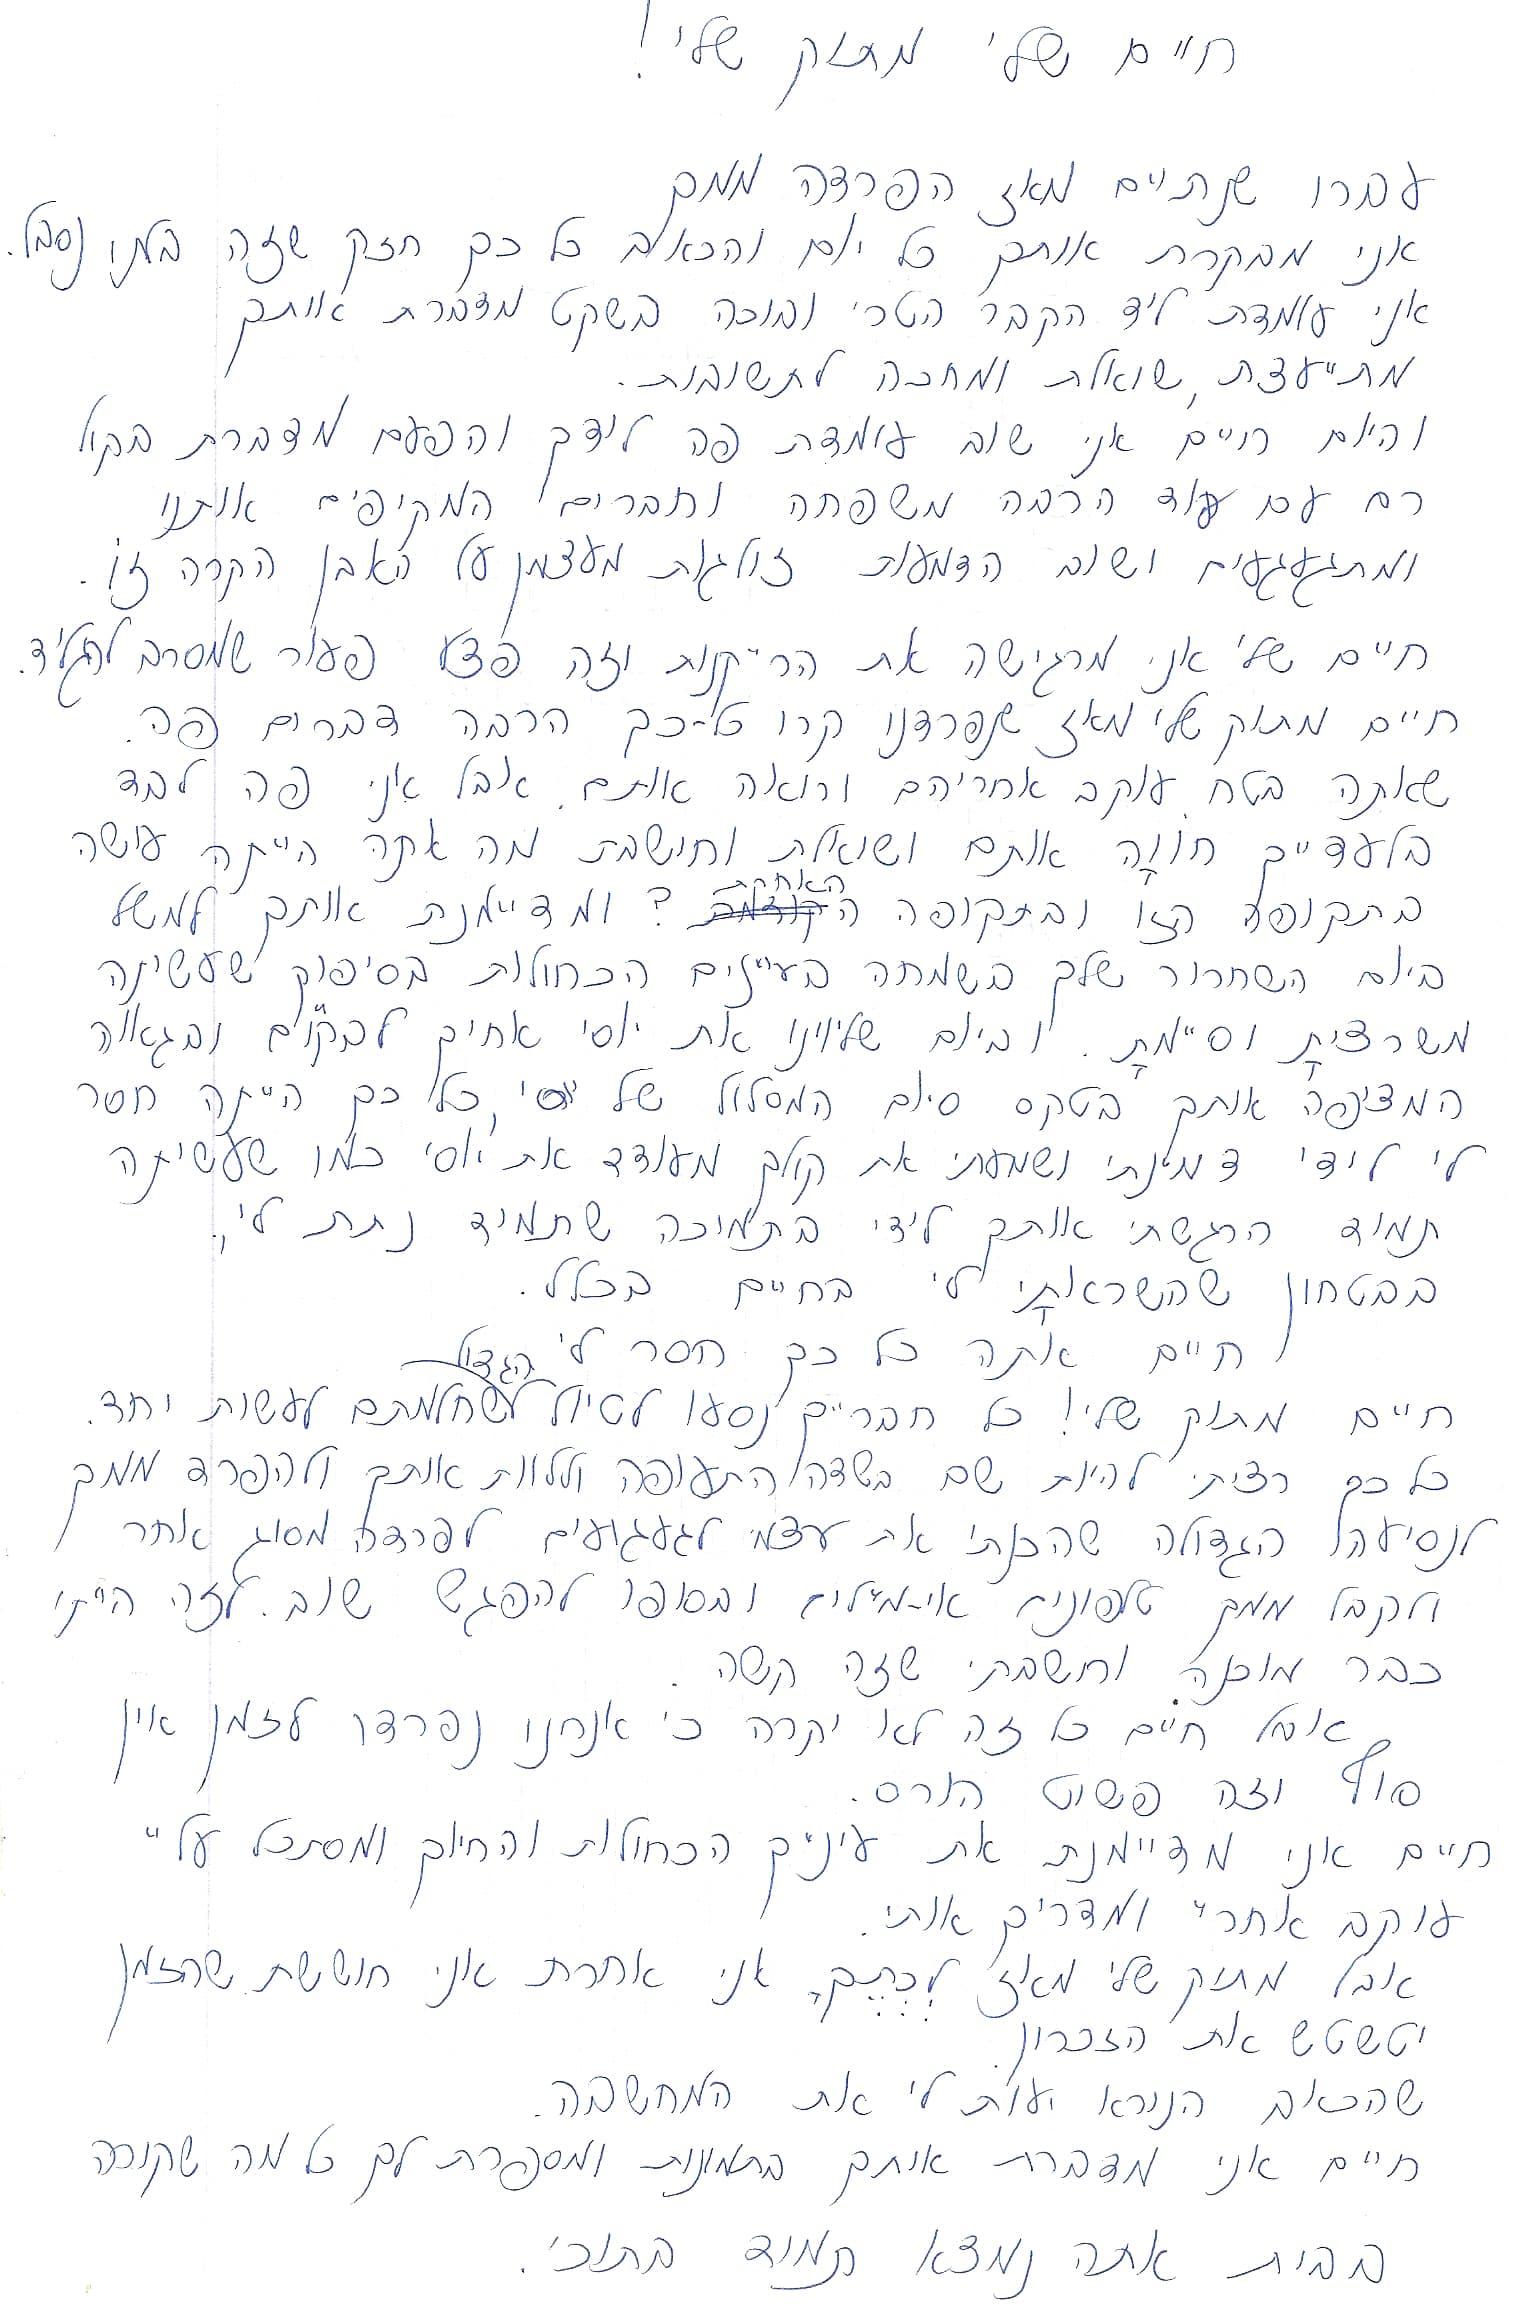 חיים שלי מתוק שלי!
עברו שנתיים מאז הפרדה ממך
אני מבקרת אותך כל יום והכאב כל כך חזק שזה בלתי נסבל.
אני עומדת ליד הקבר הטרי ובוכה בשקט מדברת אותך
מתייעצת, שואלת ומחכה לתשובות.
והיום חיים אני שוב עומדת פה לידך והפעם מדברת בקול
רם עם עוד הרבה משפחה וחברים המקיפים אותנו
ומתגעגעים ושוב הדמעות זולגות מעצמן על האבן הקרה זו.
חיים שלי אני מרגישה את הריקנות וזה פצע פעור שמסרב להגליד.
חיים מתוק שלי מאז שנפרדנו קרו כל-כך הרבה דברים פה.
שאתה בטח עוקב אחריהם ורואה אותם. אבל אני פה לבד
בלעדייך חווה אותם ושואלת וחושבת מה אתה הייתה עושה
בתקופה הזו ובתקופה האחרת ? ומדיימנת אותך למשל
ביום השחרור שלך בשמחה בעיינים הכחולות בסיפוק שעשיתה
משרצית וסיימת. וביום שליוינו את יוסי אחיך לבקו"ם ובגאווה
המציפה אותך בטקס סיום המסלול של יוסי, כל כך הייתה חסר
לי לידי דמינתי ושמעתי את קולך מעודד את יוסי כמו שעשיתה
תמיד הרגשתי אותך לידי בתמיכה שתמיד נתת לי,
בבטחון שהשראת לי בחיים בכלל.
חיים אתה כל כך חסר לי
חיים מתוק שלי! כל חבריך נסעו לטיול הגדול שחלמתם לעשות יחד.
כל כך רציתי להיות שם בשדה התעופה וללוות אותך ולהפרד ממך
לנסיעה הגדולה שהכנתי את עצמי לגעגועים לפרדה מסוג אחר
ולקבל ממך טלפונים אי-מיילים ובסופו להפגש שוב. לזה הייתי
כבר מוכנה וחשבתי שזה קשה.
אבל חיים כל זה לא יקרה כי אנחנו נפרדנו לזמן אין
סוף וזה פשוט הורס.
חיים אני מדיימנת את עיניך הכחולות והחיוך ומסתכל עליי
עוקב אחריי ומדריך אותי.
אבל מתוק שלי מאז לכתך, אני אחרת אני חוששת שהזמן
יטשטש את הזכרון
שהכאב הנורא יעוות לי את המחשבה.
חיים אני מדברת אותך בתמונות ומספרת לך כל מה שקורה
בבית אתה נמצא תמיד בתוכי.